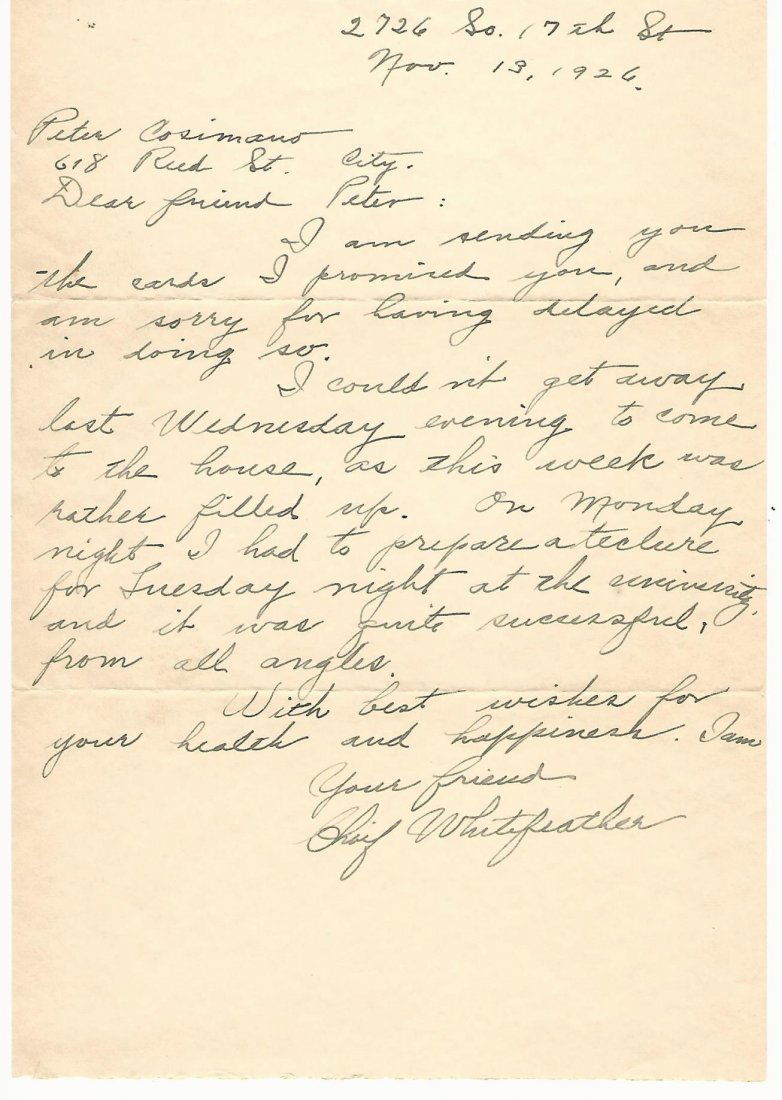 2726 So. 17th St
Nov. 13, 1926.
Peter Cosimano
618 Reed St. City.
Dear friend Peter:
I am sending you
the cards I promised you, and
am sorry for having delayed
in doing so.
I could n't get away
last Wednesday evening to come
to the house, as this week was
rather filled up. On Monday
night I had to prepare a lecture
for Tuesday night at the university,
and it was quite successful,
from all angles.
With best wishes for
your health and happiness. I am
Your friend
Chief Whitefeather